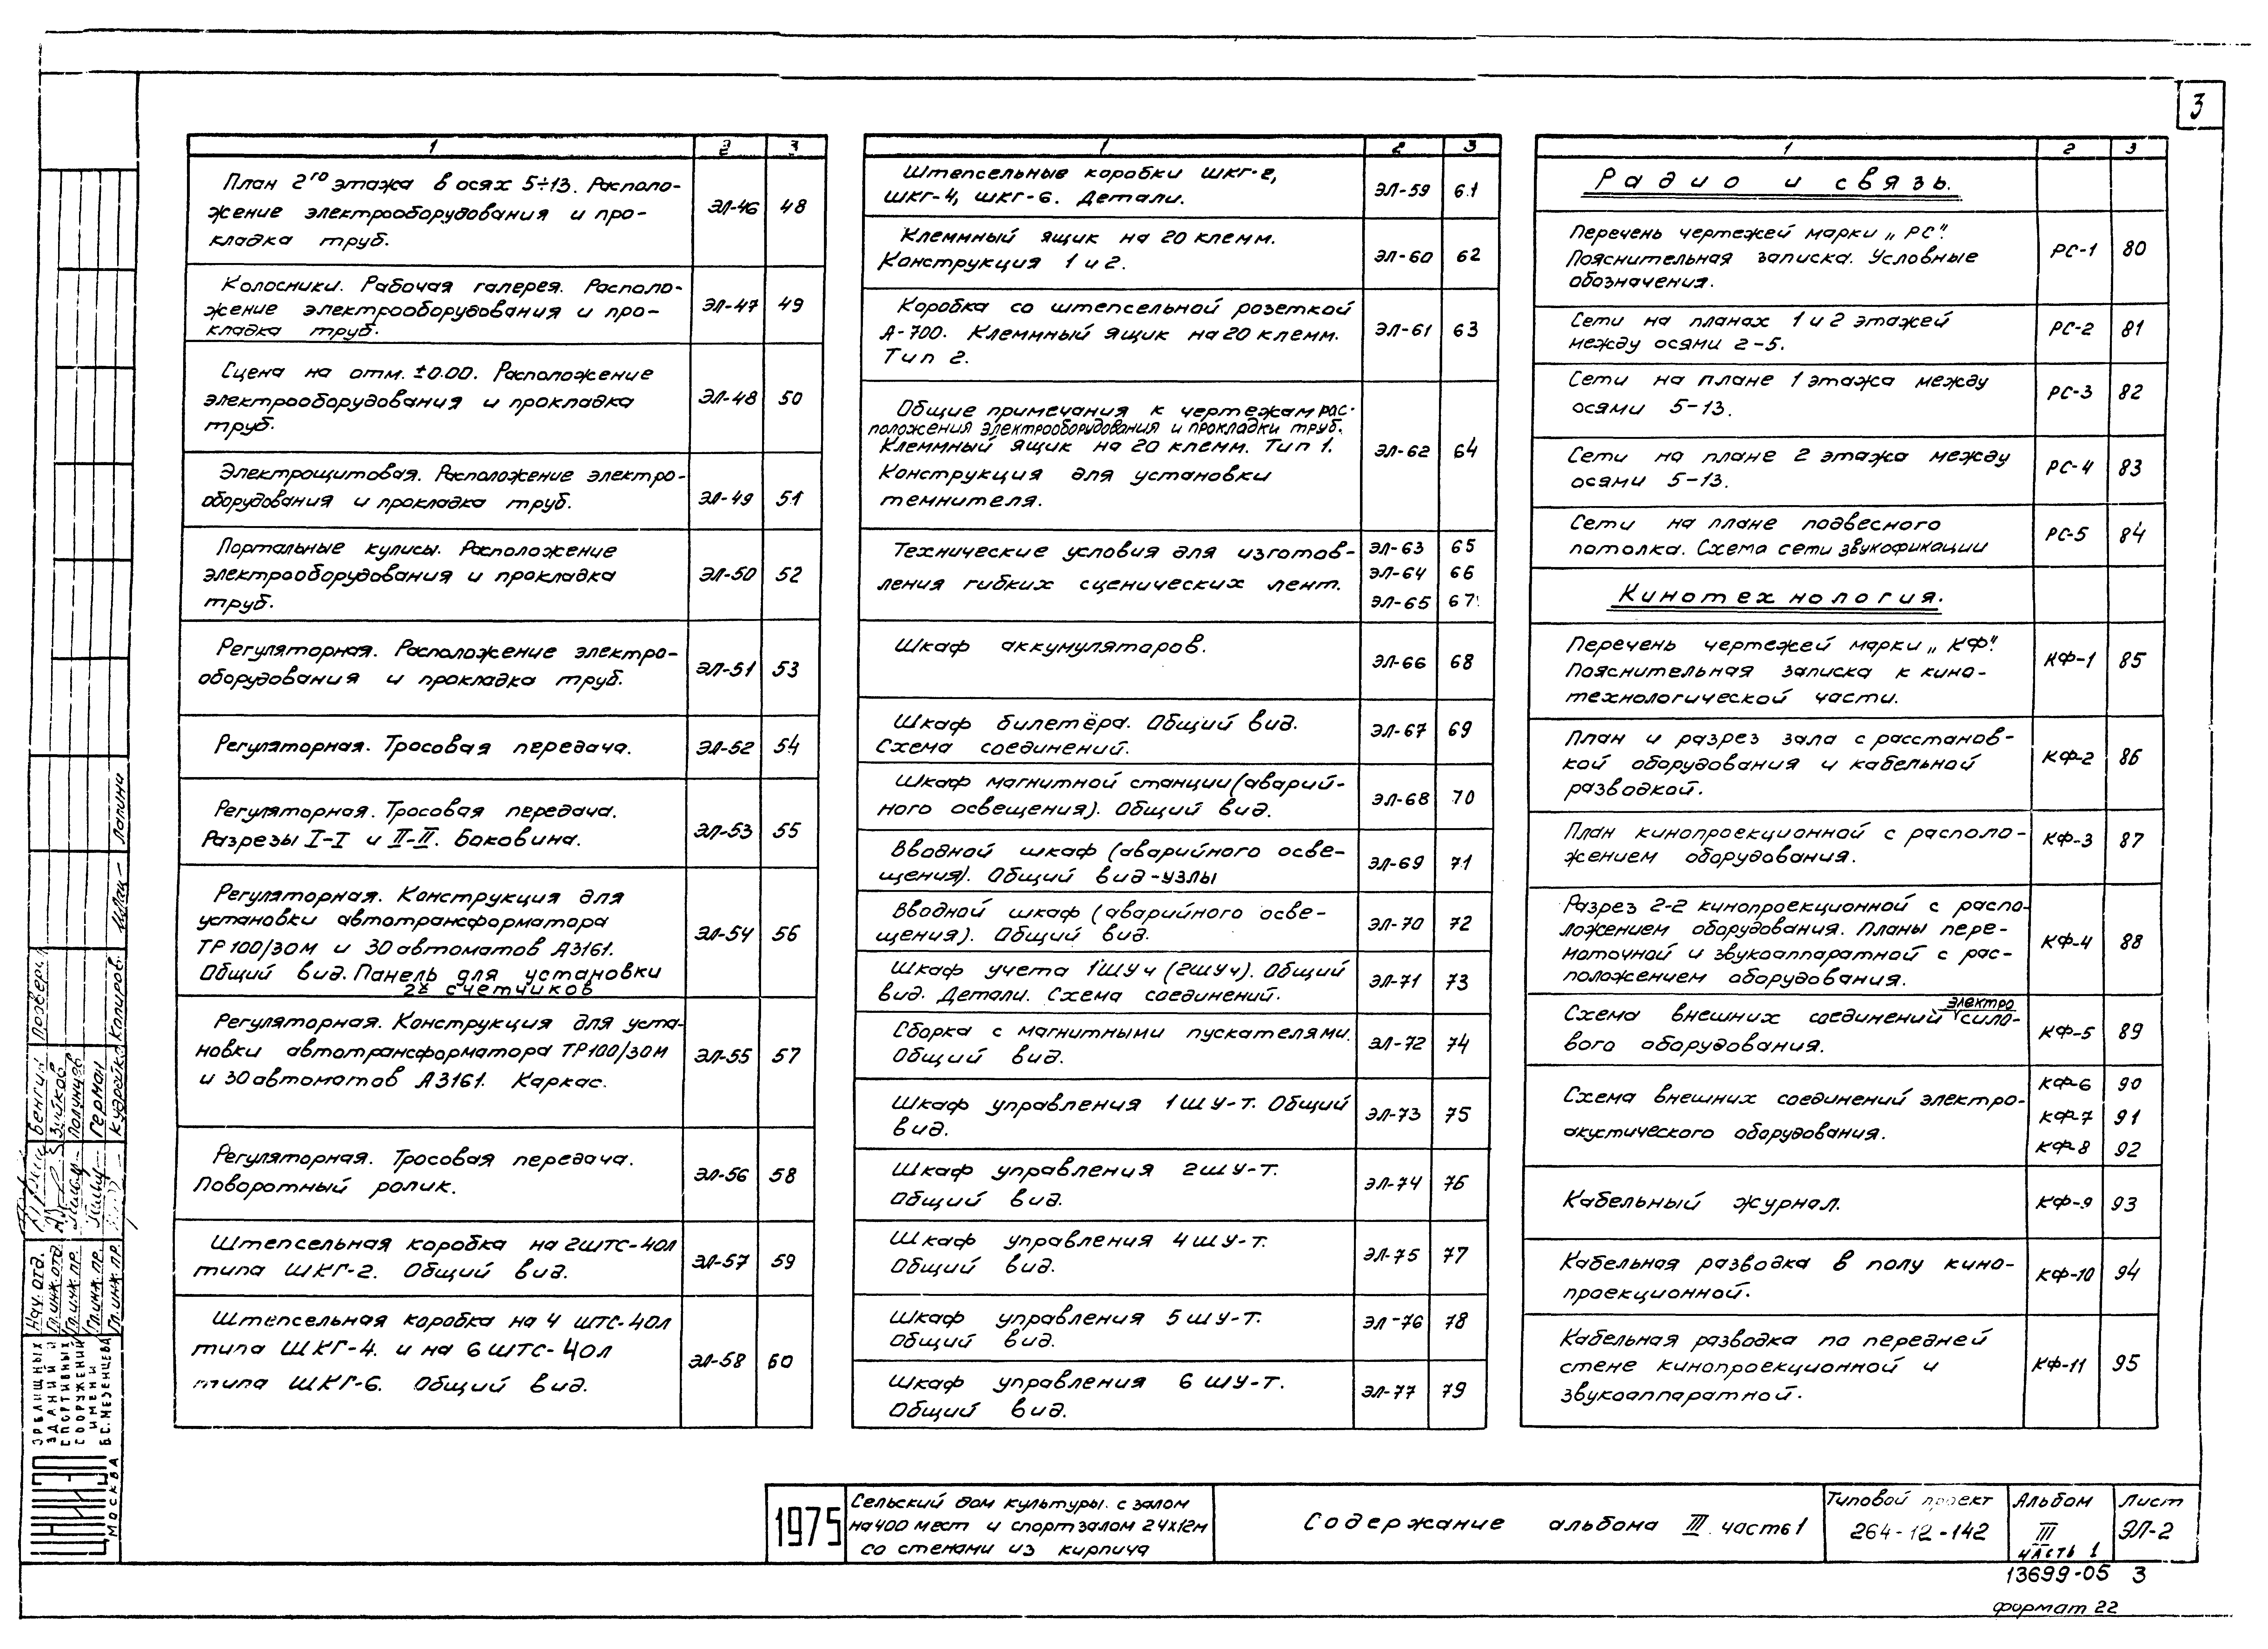 3
1 2 3
План 2го этажа в осях 5÷13. Располо-
жение электрооборудования и про-
кладка труб.
ЭЛ-46 48
Колосники. Рабочая галерея. Располо-
жение электрооборудования и про-
кладка труб.
ЭЛ-47 49
Сцена на отм. ±0.00. Расположение
электрооборудования и прокладка
труб.
ЭЛ-48 50
Электрощитовая. Расположение электро-
оборудования и прокладка труб.
ЭЛ-49 51
Портальные кулисы. Расположение
электрооборудования и прокладка
труб.
ЭЛ-50 52
Регуляторная. Расположение электро-
оборудования и прокладка труб.
ЭЛ-51 53
Регуляторная. Тросовая передача.
ЭЛ-52 54
Регуляторная. Тросовая передача.
Разрезы I-I и II-II. Боковина.
ЭЛ-53 55
Регуляторная. Конструкция для
установки автотрансформатора
ТР100/30М и 30 автоматов А3161.
Общий вид. Панель для установки
2х счетчиков
ЭЛ-54 56
Регуляторная. Конструкция для уста-
новки автотрансформатора ТР100/30М
и 30 автоматов А3161. Каркас.
ЭЛ-55 57
Регуляторная. Тросовая передача.
Поворотный ролик.
ЭЛ-56 58
Штепсельная коробка на 2ШТС-40Л
типа ШКГ-2. Общий вид.
ЭЛ-57 59
Штепсельная коробка на 4 ШТС-40Л
типа ШКГ-4. и на 6 ШТС-40Л
типа ШКГ-6. Общий вид.
ЭЛ-58 60
1 2 3
Штепсельные коробки ШКГ-2,
ШКГ-4, ШКГ-6. Детали.
ЭЛ-59 61
Клеммный ящик на 20 клемм.
Конструкция 1 и 2.
ЭЛ-60 62
Коробка со штепсельной розеткой
А-700. Клеммный ящик на 20 клемм.
Тип 2.
ЭЛ-61 63
Общие примечания к чертежам рас-
положения электрооборудования и прокладки труб.
Клеммный ящик на 20 клемм. Тип 1.
Конструкция для установки
темнителя.
ЭЛ-62 64
Технические условия для изготов-
ления гибких сценических лент.
ЭЛ-63 65
ЭЛ-64 66
ЭЛ-65 67
Шкаф аккумуляторов.
ЭЛ-66 68
Шкаф билетёра. Общий вид.
Схема соединений.
ЭЛ-67 69
Шкаф магнитной станции (аварий-
ного освещения). Общий вид.
ЭЛ-68 70
Вводной шкаф (аварийного осве-
щения). Общий вид-узлы
ЭЛ-69 71
Вводной шкаф (аварийного осве-
щения). Общий вид.
ЭЛ-70 72
Шкаф учета 1ШУч (2ШУч). Общий
вид. Детали. Схема соединений.
ЭЛ-71 73
Сборка с магнитными пускателями.
Общий вид.
ЭЛ-72 74
Шкаф управления 1ШУ-Т. Общий
вид.
ЭЛ-73 75
Шкаф управления 2ШУ-Т.
Общий вид.
ЭЛ-74 76
Шкаф управления 4ШУ-Т.
Общий вид.
ЭЛ-75 77
Шкаф управления 5ШУ-Т.
Общий вид.
ЭЛ-76 78
Шкаф управления 6 ШУ-Т.
Общий вид.
ЭЛ-77 79
1 2 3
Радио и связь.
Перечень чертежей марки „РС".
Пояснительная записка. Условные
обозначения.
РС-1 80
Сети на планах 1 и 2 этажей
между осями 2-5.
РС-2 81
Сети на плане 1 этажа между
осями 5-13.
РС-3 82
Сети на плане 2 этажа между
осями 5-13.
РС-4 83
Сети на плане подвесного
потолка. Схема сети звукофикации
РС-5 84
Кинотехнология.
Перечень чертежей марки „КФ".
Пояснительная записка к кино-
технологической части.
КФ-1 85
План и разрез зала с расстанов-
кой оборудования и кабельной
разводкой.
КФ-2 86
План кинопроекционной с располо-
жением оборудования.
КФ-3 87
Разрез 2-2 кинопроекционной с распо-
ложением оборудования. Планы пере-
моточной и звукоаппаратной с рас-
положением оборудования.
КФ-4 88
Схема внешних соединений электросило-
вого оборудования.
КФ-5 89
Схема внешних соединений электро-
акустического оборудования.
КФ-6 90
КФ-7 91
КФ-8 92
Кабельный журнал.
КФ-9 93
Кабельная разводка в полу кино-
проекционной.
КФ-10 94
Кабельная разводка по передней
стене кинопроекционной и
звукоаппаратной.
КФ-11 95
1975
Сельский дом культуры с залом
на 400 мест и спортзалом 24х12м
со стенами из кирпича
Содержание альбома III часть 1
Типовой проект
264-12-142
Альбом
III
часть 1
Лист
ЭЛ-2
13699-05 3
формат 22
ЦНИИЭП
ЗРЕЛИЩНЫХ
ЗДАНИЙ И
СПОРТИВНЫХ
СООРУЖЕНИЙ
ИМЕНИ
Б.С. МЕЗЕНЦЕВА
МОСКВА
Нач. отд.
Гл. инж. отд.
Гл. инж. пр. Полунцев
Гл. инж. пр. Герман
Гл. инж. пр.
Проверил
Копиров.